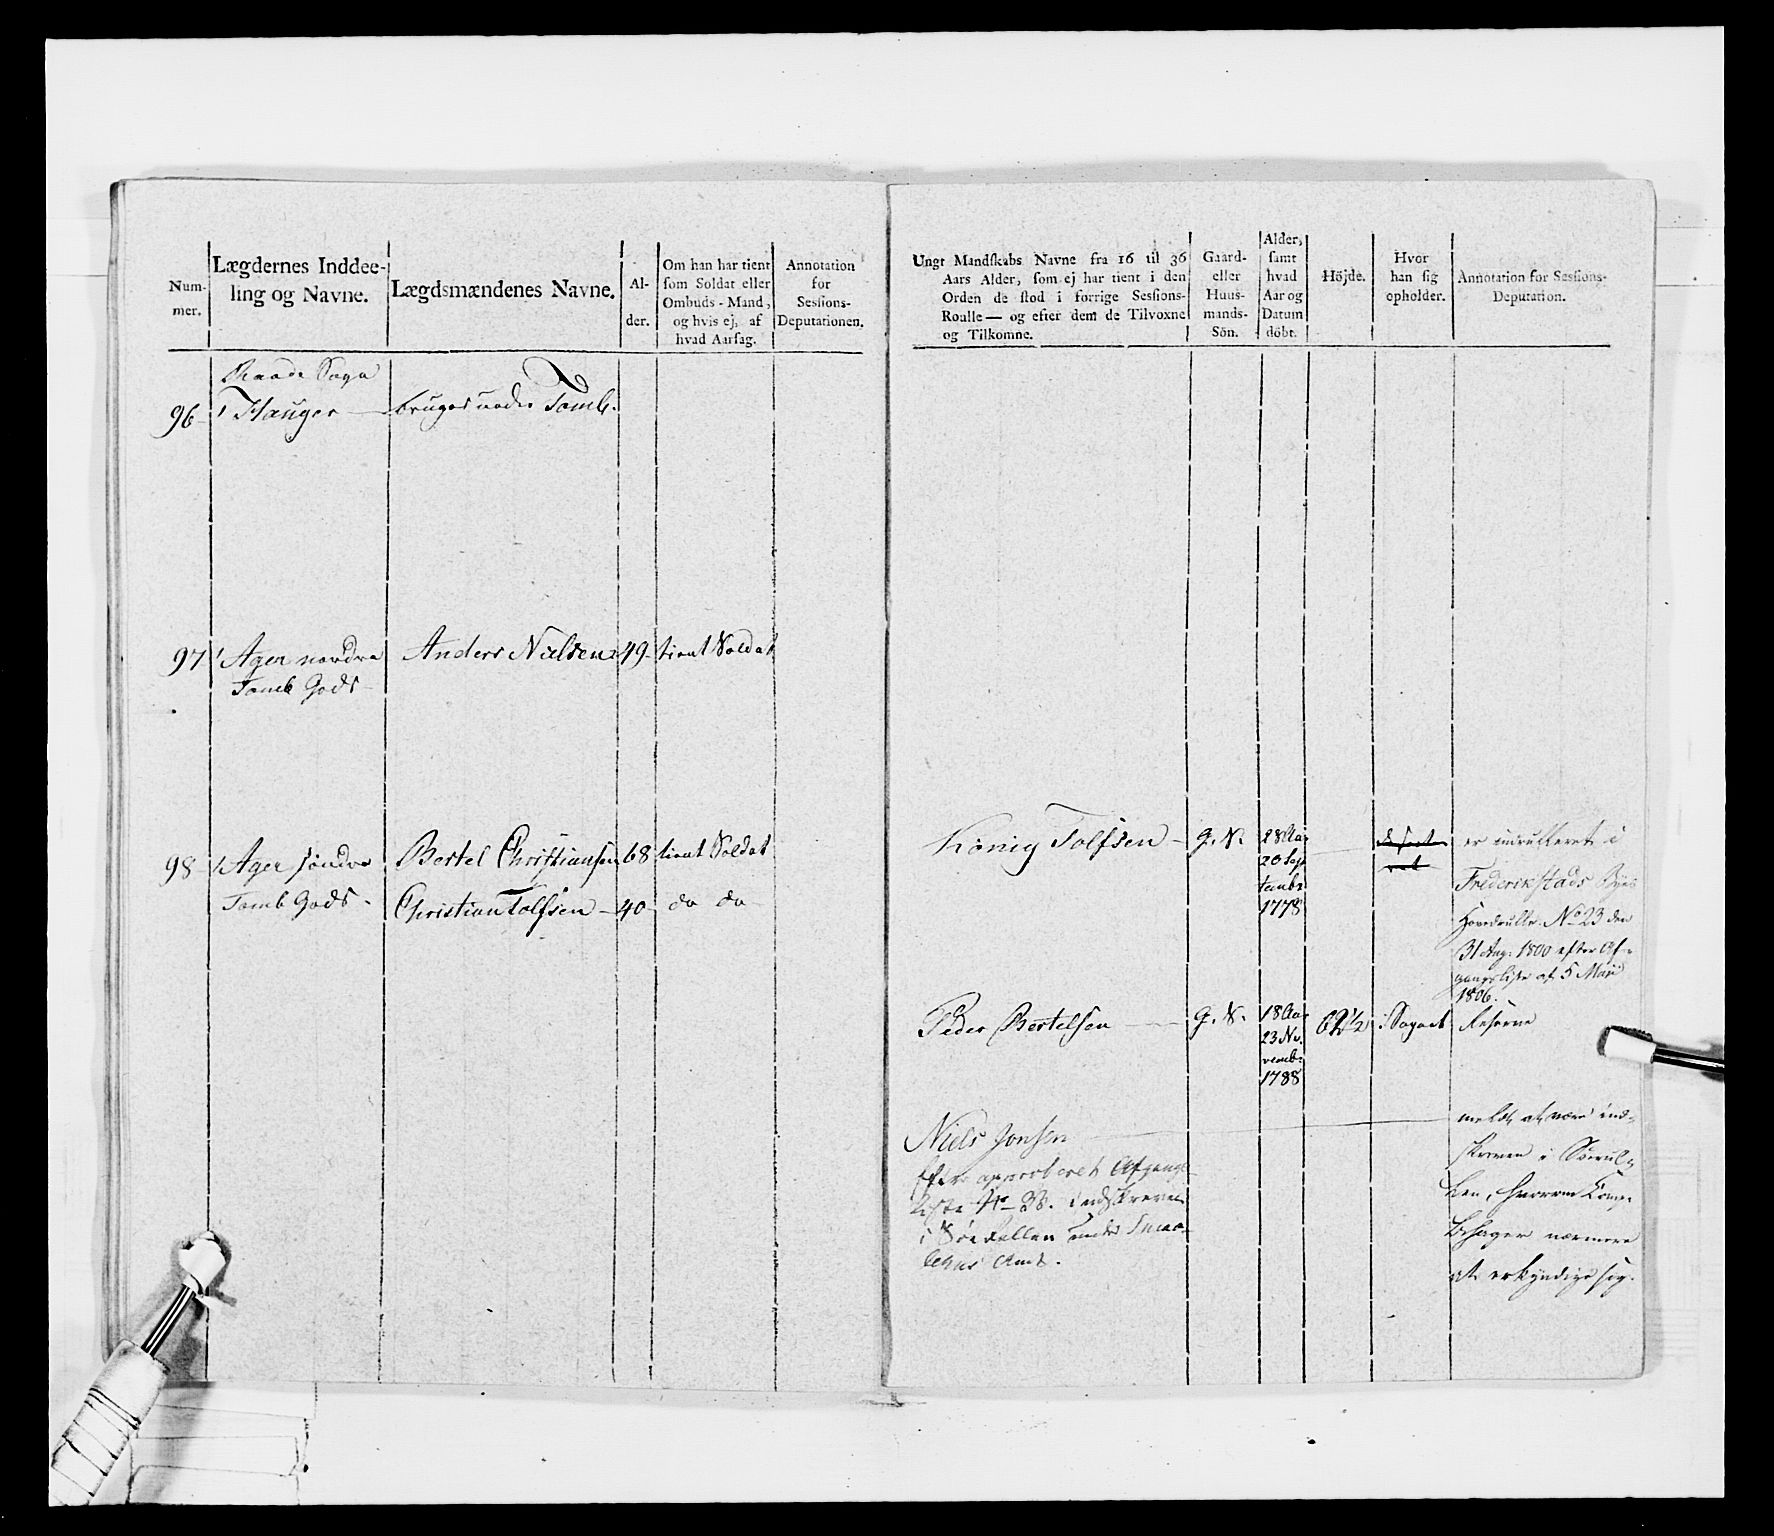 Num-
mer.
Lægdernes Inddee-
ling og Navne.
Lægdsmændenes Navne.
Al-
der.
Om han har tient
som Soldat eller
Ombuds-Mand,
og hvis ej, af
hvad Aarsag.
Annotation
for
Sessions-
Deputationen.
Raade Sogn
96 1 Hauger — bruges under Tomb.
97 1 Ager nordre Anders Nielsen 49 tient Soldat
Tomb Gods
98 1 Ager søndre Bertel Christiansen 68 tient Soldat
Tomb Gods Christian Tolfsen 40 do do
Ungt Mandskabs Navne fra 16 til 36
Aars Alder, som ej har tient i den
Orden de stod i forrige Sessions-
Roulle — og efter dem de Tilvoxne
og Tilkomne.
Gaard-
eller
Huus-
mands-
Sön.
Alder,
samt
hvad
Aar og
Datum
döbt.
Höjde.
Hvor
han sig
opholder.
Annotation for Sessions-
Deputation.
König Tolfsen G. S. 28 Aar
20 Sep
tembr
1778
er indrulleret i
Frederikstads Byes
Hovedrulle No 23 den
31 Aug. 1800 efter Af-
gangsliste af 5 Maii
1806.
Peder Bertelsen G. S. 18 Aar 62 1/2 i Sognet Reserve
23 No
vemb.
1788
Niels Jonsen
Efter approberet Afgangs-
liste No 38. Indskreven
i Søe Rullen under Smaa-
lehns Amt.
meldt at være ind-
skreven i Søerul-
len, hvorom Comp.
behager nærmere
at erkyndige sig.